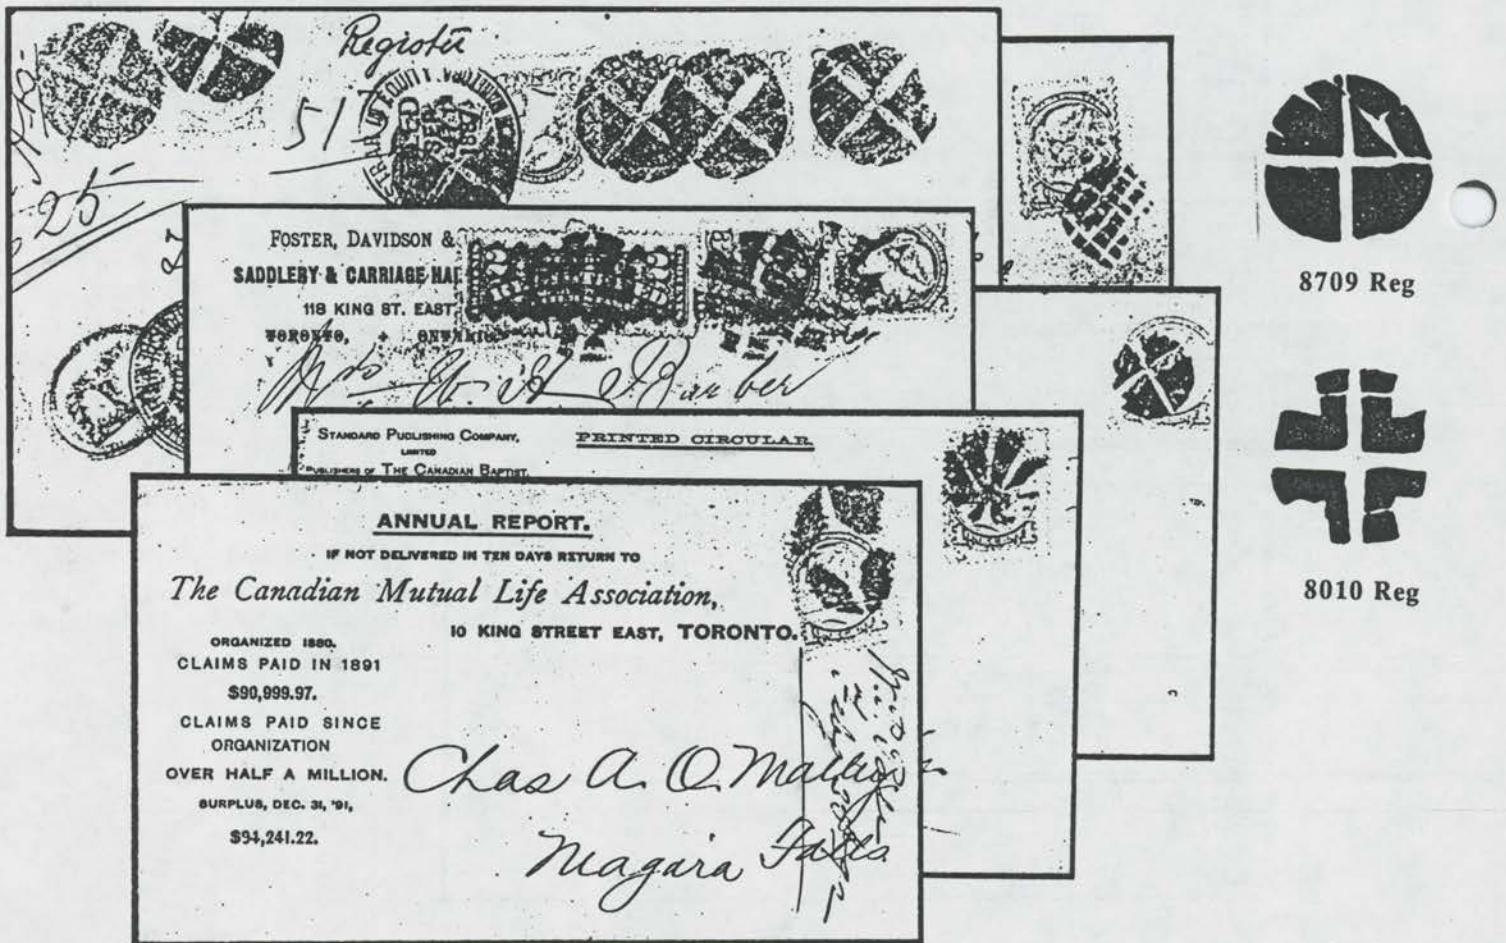 Register
51
25
FOSTER, DAVIDSON &
SADDLERY & CARRIAGE HAR
118 KING ST. EAST
TORONTO, ONTARIO
REGISTERED
STANDARD PUBLISHING COMPANY,
LIMITED
PUBLISHERS OF THE CANADIAN BAPTIST.
PRINTED CIRCULAR
ANNUAL REPORT.
IF NOT DELIVERED IN TEN DAYS RETURN TO
The Canadian Mutual Life Association,
10 KING STREET EAST, TORONTO.
ORGANIZED 1880.
CLAIMS PAID IN 1891
$90,999.97.
CLAIMS PAID SINCE
ORGANIZATION
OVER HALF A MILLION.
SURPLUS, DEC. 31, '91,
$94,241.22.
Chas A. O.
Niagara Falls
8709 Reg
8010 Reg